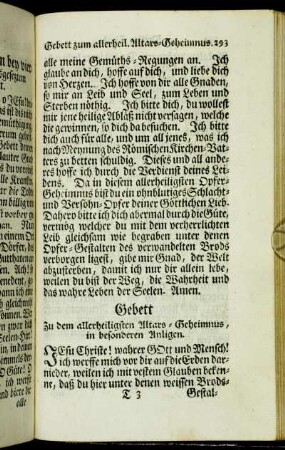 Gebett zum allerheil. Altars-Geheimnus. 293
alle meine Gemüths-Regungen an. Ich
glaube an dich, hoffe auf dich, und liebe dich
von Herzen. Ich hoffe von dir alle Gnaden,
so mir an Leib und Seel, zum Leben und
Sterben nöthig. Ich bitte dich, du wollest
mir jene heilige Abläß nicht versagen, welche
die gewinnen, so dich da besuchen. Ich bitte
dich auch für alle, und um all jenes, was ich
nach Meynung des Römischen Kirchen-Vat-
ters zu betten schuldig. Dieses und all ande-
res hoffe ich durch die Verdienst deines Lei-
dens. Da in diesem allerheiligsten Opfer-
Geheimnus bist du ein ohnblutiges Schlacht-
und Versöhn-Opfer deiner Göttlichen Lieb.
Dahero bitte ich dich abermal durch die Güte,
vermög welcher du mit dem verherrlichten
Leib gleichsam wie begraben unter denen
Opfer-Gestalten des verwandelten Brods
verborgen ligest, gibe mir Gnad, der Welt
abzusterben, damit ich nur dir allein lebe,
weilen du bist der Weg, die Wahrheit und
das wahre Leben der Seelen. Amen.
Gebett
Zu dem allerheiligsten Altars-Geheimnus,
in besonderen Anligen.
JEsu Christe! wahrer GOtt und Mensch!
ich werffe mich vor dir auf die Erden dar-
nieder, weilen ich mit vestem Glauben beken-
ne, daß du hier unter denen weissen Brods-
T 3 Gestal-